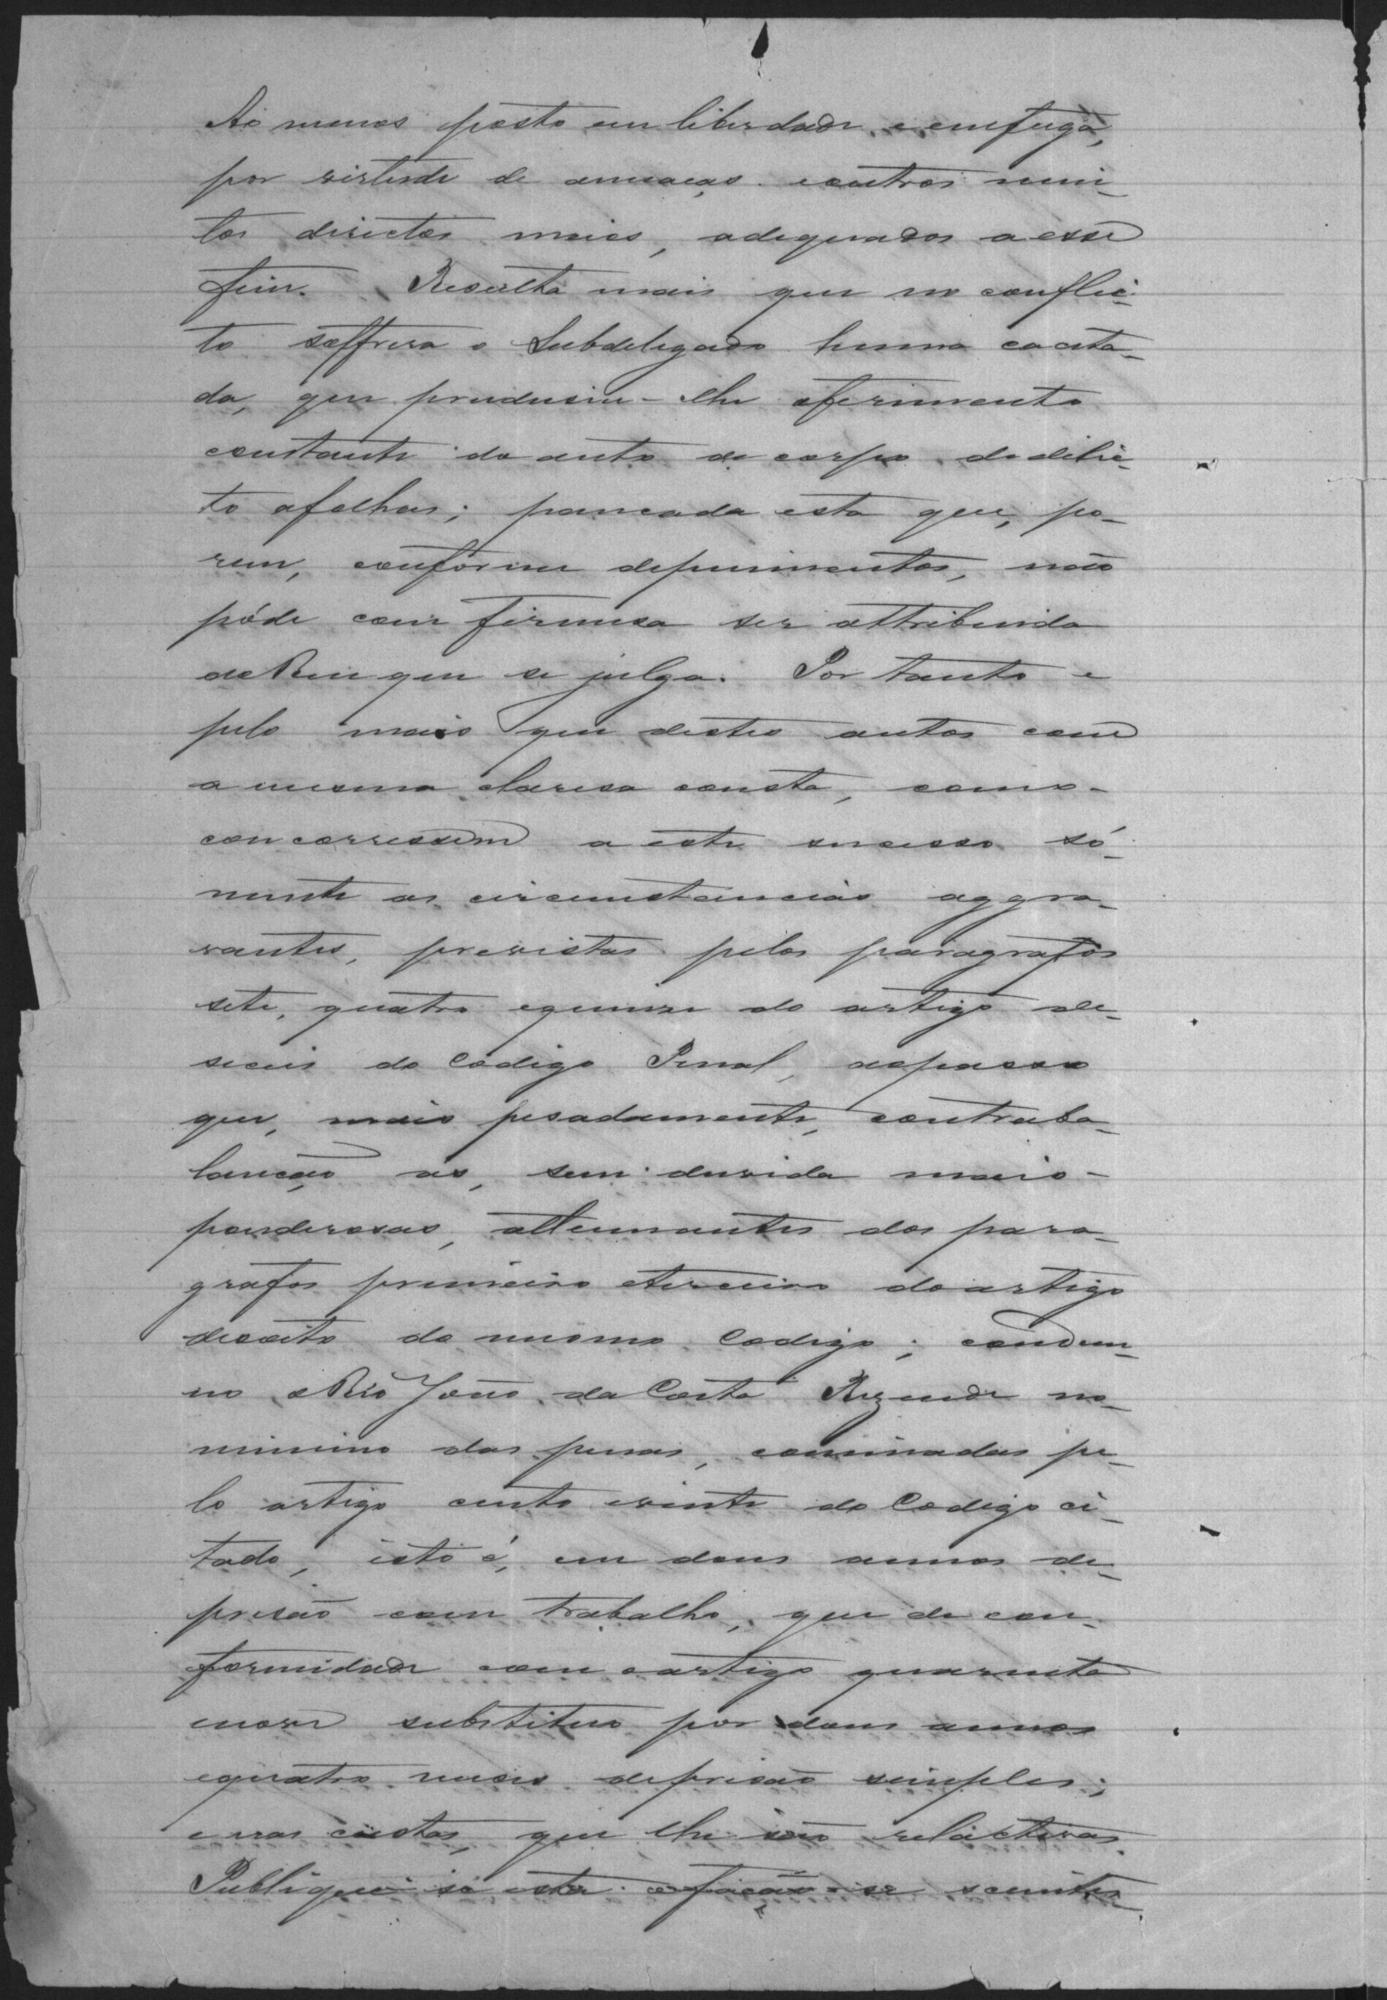 Ao menos posto em liberdade e em fuga,
por virtude de ameaças e outros mui-
tos directos meios, adequados a esse
fim. Resulta mais que no conflic-
to soffrera o Subdelegado huma caceta-
da, que produsiu-lhe o ferimento
constante do auto de corpo de delic-
to a folhas; pancada esta que, po-
rem, conforme depuimentos, não
póde com firmesa ser attribuida
ao Reu que se julga. Por tanto e
pelo mais que destes autos com
a mesma claresa consta, como
concorressem a este sucesso só-
mente as circumstancias aggra-
vantes, previstas pelos paragrafos
sete, quatro e quinze do artigo de-
seseis do Codigo Penal, ao passo
que, mais pesadamente, contraba-
lanção as, sem duvida mais
ponderosas, attenuantes dos para-
grafos primeiro e terceiro do artigo
desoito do mesmo Codigo; condem-
no o Réo João da Costa Rezende no
minimo das penas, cominadas pe-
lo artigo cento e vinte do Codigo ci-
tado, isto é, em dous annos de
prisão com trabalho, que de con-
formidade com o artigo quarenta
e nove substituo por dous annos
e quatro meses de prisão simples;
e nas custas, que lhe são relactivas.
Publique-se esta e fação-se scientes